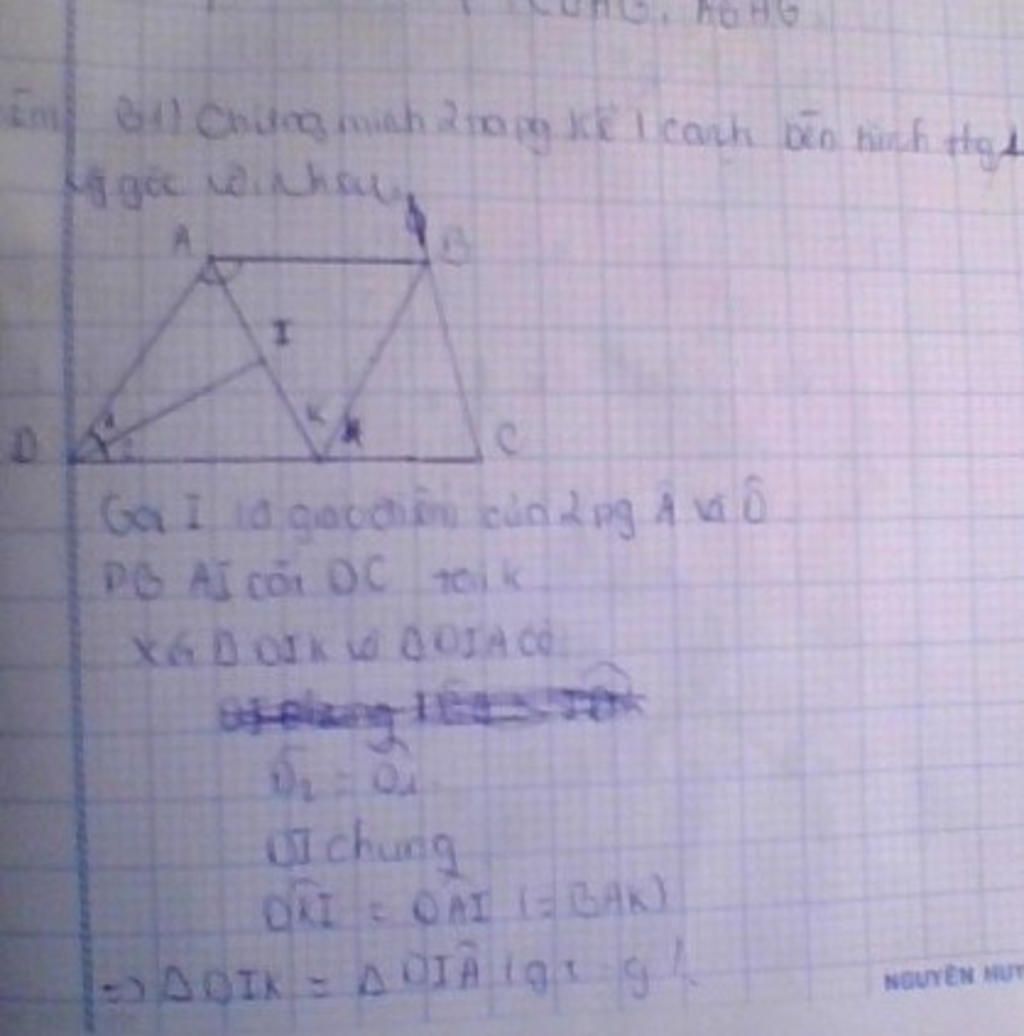 B1) Chứng minh 2 pg kề 1 cạnh bên hình thg
góc với nhau
A
B
I
K
D
C
Gọi I là giao điểm của 2 pg Â và D̂
AI cắt DC tại K
Xét Δ DIK và Δ DIA có
D̂₂ = D̂₁
DI chung
DKI = DAI (= BAK)
=> Δ DIK = Δ DIA (g
NGUYÊN HUY